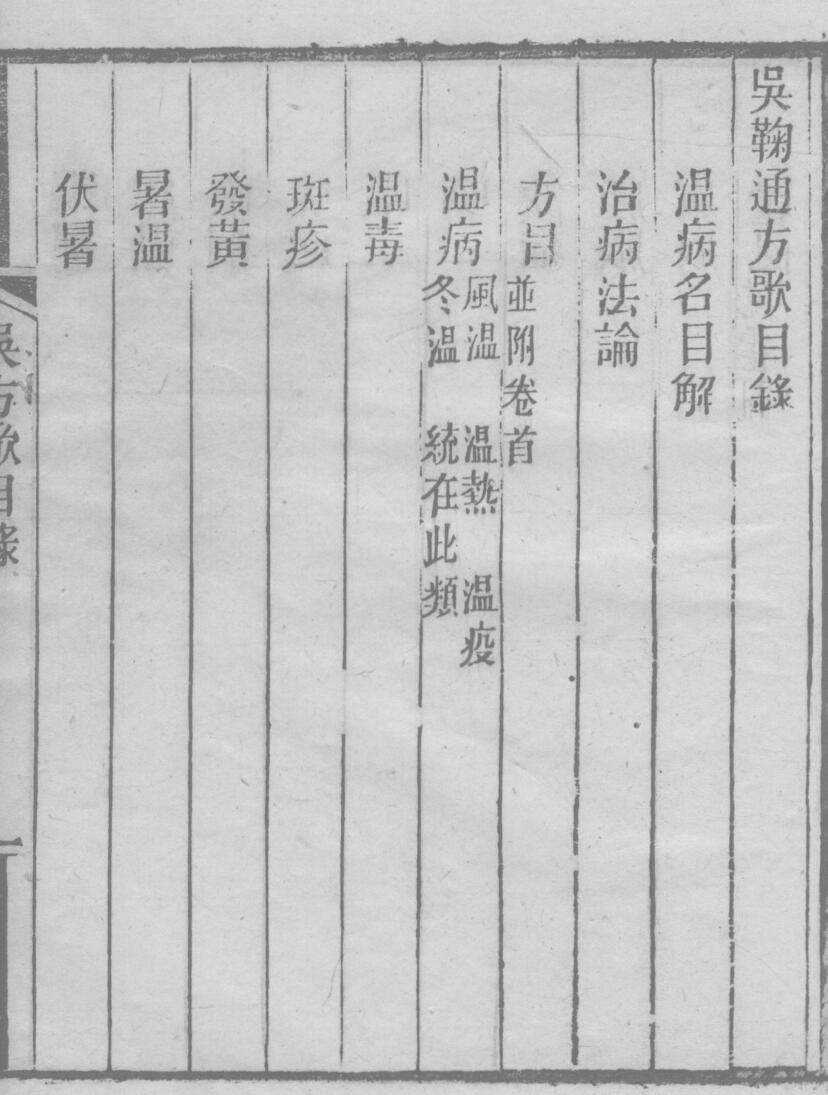 吳鞠通方歌目錄
温病名目解
治病法論
方目 並附卷首
温病 風温 温熱 温疫
冬温 統在此類
温毒
斑疹
發黃
暑温
伏暑
吳方歌目錄